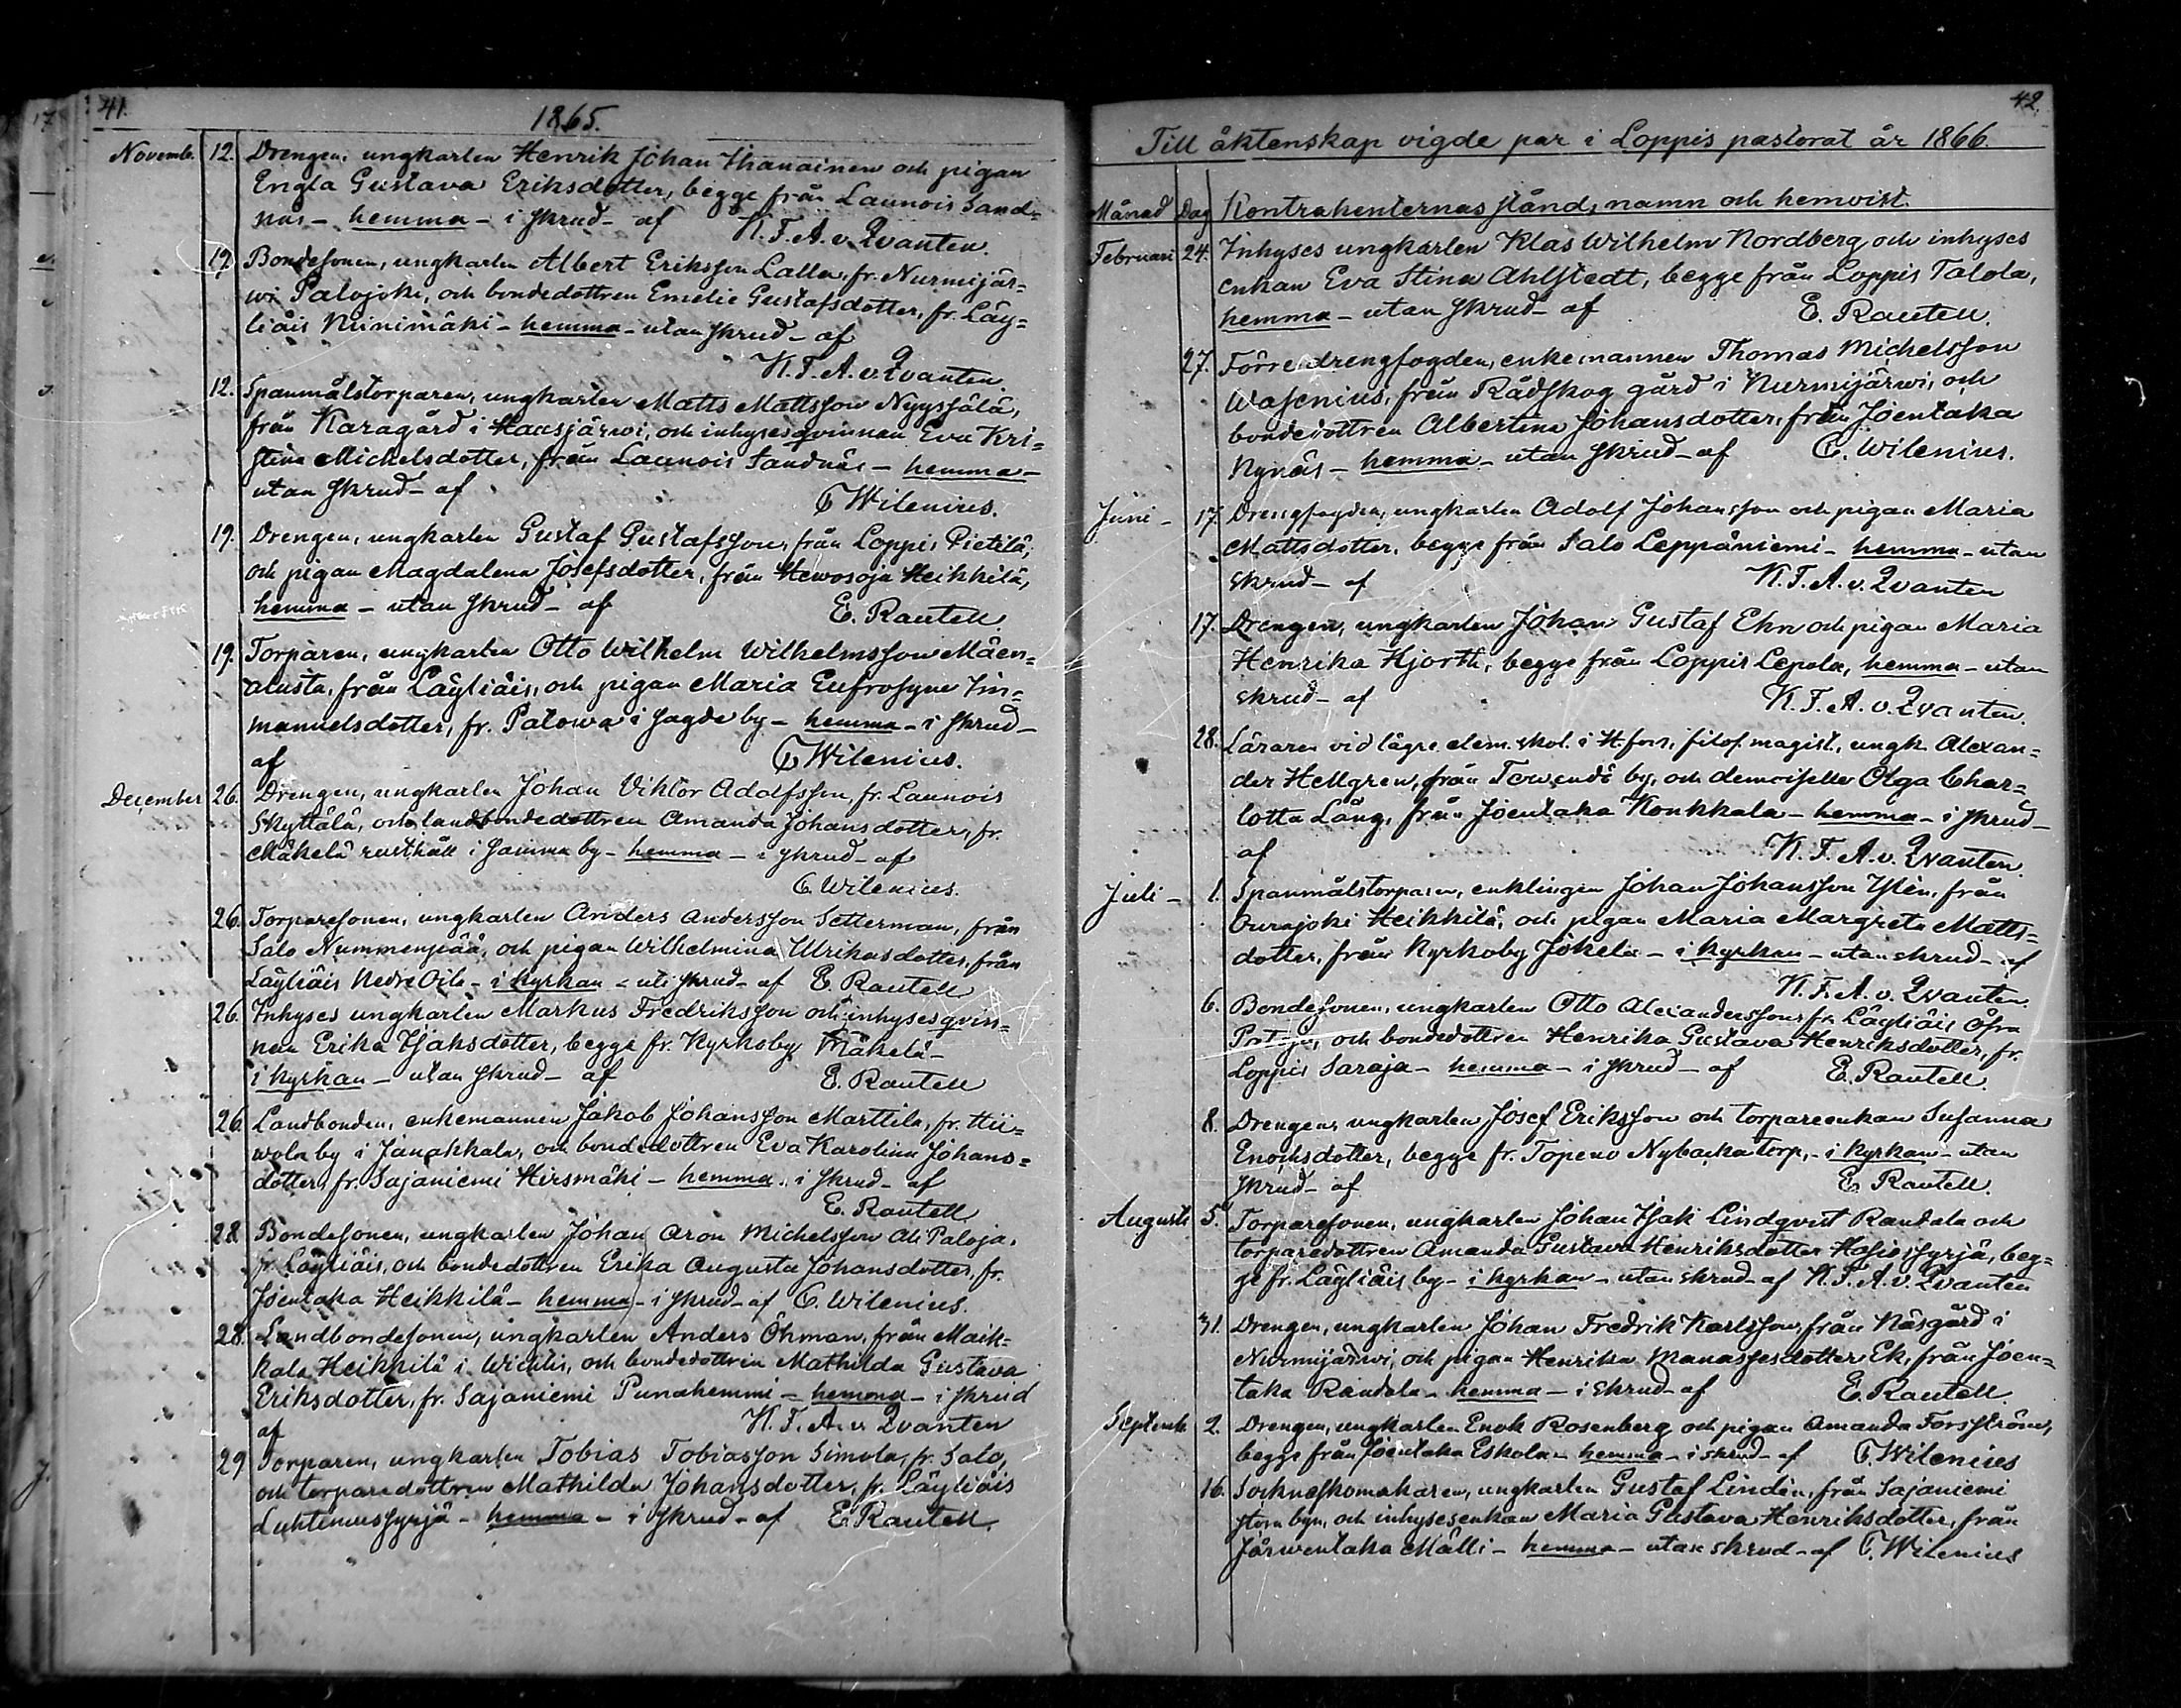 41.
1865.
Novemb. 12. Drengen, ungkarlen Henrik Johan Ihanainen och pigan
Engla Gustava Eriksdotter, begge från Launois Sand=
näs - hemma - i skrud - af K. F. A. v. Qvanten.
19. Bondesonen, ungkarlen Albert Eriksson Lalla, fr. Nurmijär=
wi Palojoki, och bondedottren Emelie Gustafsdotter, fr. Läy=
liäis Niinimäki - hemma - utan skrud - af
K. F. A. v. Qvanten.
12. Spanmålstorparen, ungkarlen Matts Mattsson Nyyssölä,
från Karagård i Hausjärwi, och inhysesqvinnan Eva Kri=
stina Michelsdotter, från Launois Sandnäs - hemma -
utan skrud - af C. Wilenius.
19. Drengen, ungkarlen Gustaf Gustafsson, från Loppis Pietilä,
och pigan Magdalena Josefsdotter, från Hewosoja Heikkilä,
hemma - utan skrud - af E. Rautell
19. Torparen, ungkarlen Otto Wilhelm Wilhelmsson Mäen=
alusta, från Läyliäis, och pigan Maria Eufrosyne Im=
manuelsdotter, fr. Patowa i Sagde by - hemma - i skrud -
af C. Wilenius.
December 26. Drengen, ungkarlen Johan Viktor Adolfsson, fr. Launois
Skyttälä, och landbondedottren Amanda Johansdotter, fr.
Mäkelä rusthåll i Samma by - hemma - i skrud - af
C. Wilenius.
26. Torparesonen, ungkarlen Anders Andersson Setterman, från
Salo Nummenpää, och pigan Wilhelmina Ulrikasdotter, från
Läyliäis Nedre Oila - i kyrkan - uti skrud - af E. Rautell
26. Inhyses ungkarlen Markus Fredriksson och inhysesqvin=
nan Erika Isaksdotter, begge fr. Kyrkoby Mäkelä -
i kyrkan - utan skrud - af E. Rautell
26. Landbonden, enkemannen Jakob Johansson Marttila, fr. Hii=
wola by i Janakkala, och bondedottren Eva Karolina Johans=
dotter, fr. Sajaniemi Hirsmäki - hemma - i skrud - af
E. Rautell
28. Bondesonen, ungkarlen Johan Aron Michelsson Ali Paloja,
fr. Läyliäis, och bondedottren Erika Augusta Johansdotter, fr.
Joentaka Heikkilä - hemma - i skrud - af C. Wilenius.
28. Landbondesonen, ungkarlen Anders Öhman, från Maik=
kala Heikkilä i Wichtis, och bondedottren Mathilda Gustava
Eriksdotter, fr. Sajaniemi Punahemmi - hemma - i skrud
af K. F. A. v. Qvanten
29 Torparen, ungkarlen Tobias Tobiasson Simola, fr. Salo,
och torparedottren Mathilda Johansdotter, fr. Läyliäis
Luhtinussyrjä - hemma - i skrud - af E. Rautell.
42.
Till äktenskap vigde par i Loppis pastorat år 1866.
Månad Dag Kontrahenternas stånd, namn och hemvist.
Februari 24. Inhyses ungkarlen Klas Wilhelm Nordberg och inhyses
enkan Eva Stina Ahlstedt, begge från Loppis Talola,
hemma - utan skrud - af E. Rautell.
27. Förre drengfogden, enkemannen Thomas Michelsson
Wasenius, från Rådskog gård i Nurmijärwi, och
bondedottren Albertina Johansdotter, från Joentaka
Nynäs - hemma - utan skrud - af C. Wilenius.
Juni - 17. Drengfogden, ungkarlen Adolf Johansson och pigan Maria
Mattsdotter, begge från Salo Leppäniemi - hemma - utan
skrud - af K. F. A. v. Qvanten
17. Drengen, ungkarlen Johan Gustaf Ehn och pigan Maria
Henrika Hjorth, begge från Loppis Lepola, hemma - utan
skrud - af K. F. A. v. Qvanten.
28. Läraren vid lägre elem. skol. i H.fors, filos. magist., ungk. Alexan=
der Hellgren, från Terwendö by, och demoiselle Olga Char=
lotta Lång, från Joentaka Konkkala - hemma - i skrud -
af K. F. A. v. Qvanten.
Juli - 1. Spanmålstorparen, enklingen Johan Johansson Ylén, från
Ourajoki Heikkilä, och pigan Maria Margreta Matts=
dotter, från Kyrkoby Jokela - i kyrkan - utan skrud - af
K. F. A. v. Qvanten.
6. Bondesonen, ungkarlen Otto Alexandersson, fr. Läyliäis Öfra
och bondedottren Henrika Gustava Henriksdotter, fr.
Loppis Saraja - hemma - i skrud - af E. Rautell.
8. Drengen, ungkarlen Josef Eriksson och torpareenkan Susanna
Enoksdotter, begge fr. Topeno Nybacka torp, - i kyrkan - utan
skrud - af E. Rautell.
Augusti 5. Torparesonen, ungkarlen Johan Isak Lindqvist Randala och
torparedottren Amanda Gustava Henriksdotter Hosiossyrjä, beg=
ge fr. Läyliäis by - i kyrkan - utan skrud - af K. F. A. v. Qvanten
31. Drengen, ungkarlen Johan Fredrik Karlsson, från Näsgård i
Nurmijärwi, och pigan Henrika Manassesdotter Ek, från Joen=
taka Randala - hemma - i skrud - af E. Rautell
Septemb. 2. Drengen, ungkarlen Enok Rosenberg och pigan Amanda Forsström,
begge från Joentaka Eskola - hemma - i skrud - af C. Wilenius
16. Socknaskomakaren, ungkarlen Gustaf Lindén, från Sajaniemi
stora byn, och inhysesenkan Maria Gustava Henriksdotter, från
Järwentaka Mälli - hemma - utan skrud - af C. Wilenius